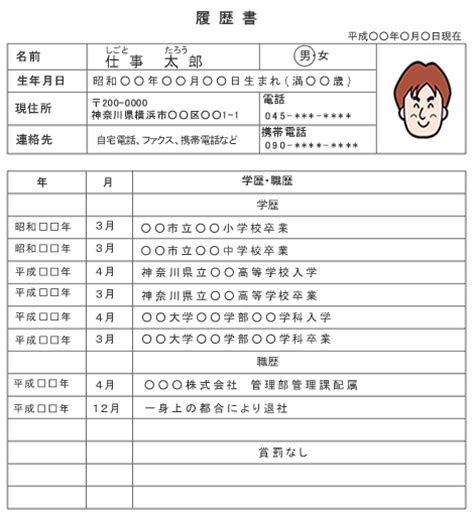 履歴書
平成〇〇年〇月〇日現在
名前 しごと たろう
仕事 太郎 男・女
生年月日 昭和〇〇年〇〇月〇〇日生まれ(満〇〇歳)
現住所 〒200-0000 電話
神奈川県横浜市〇〇区〇〇1-1 045-***-****
連絡先 自宅電話、ファクス、携帯電話など 携帯電話
090-***-****
年 月 学歴・職歴
学歴
昭和□□年 3月 〇〇市立〇〇小学校卒業
昭和□□年 3月 〇〇市立〇〇中学校卒業
平成□□年 4月 神奈川県立〇〇高等学校入学
平成□□年 3月 神奈川県立〇〇高等学校卒業
平成□□年 4月 〇〇大学〇〇学部〇〇学科入学
平成□□年 3月 〇〇大学〇〇学部〇〇学科卒業
職歴
平成□□年 4月 〇〇〇株式会社 管理部管理課配属
平成□□年 12月 一身上の都合により退社
賞罰なし